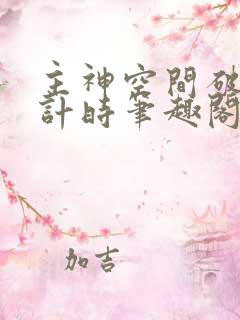 主神空間破
計時筆趣閣
加吉